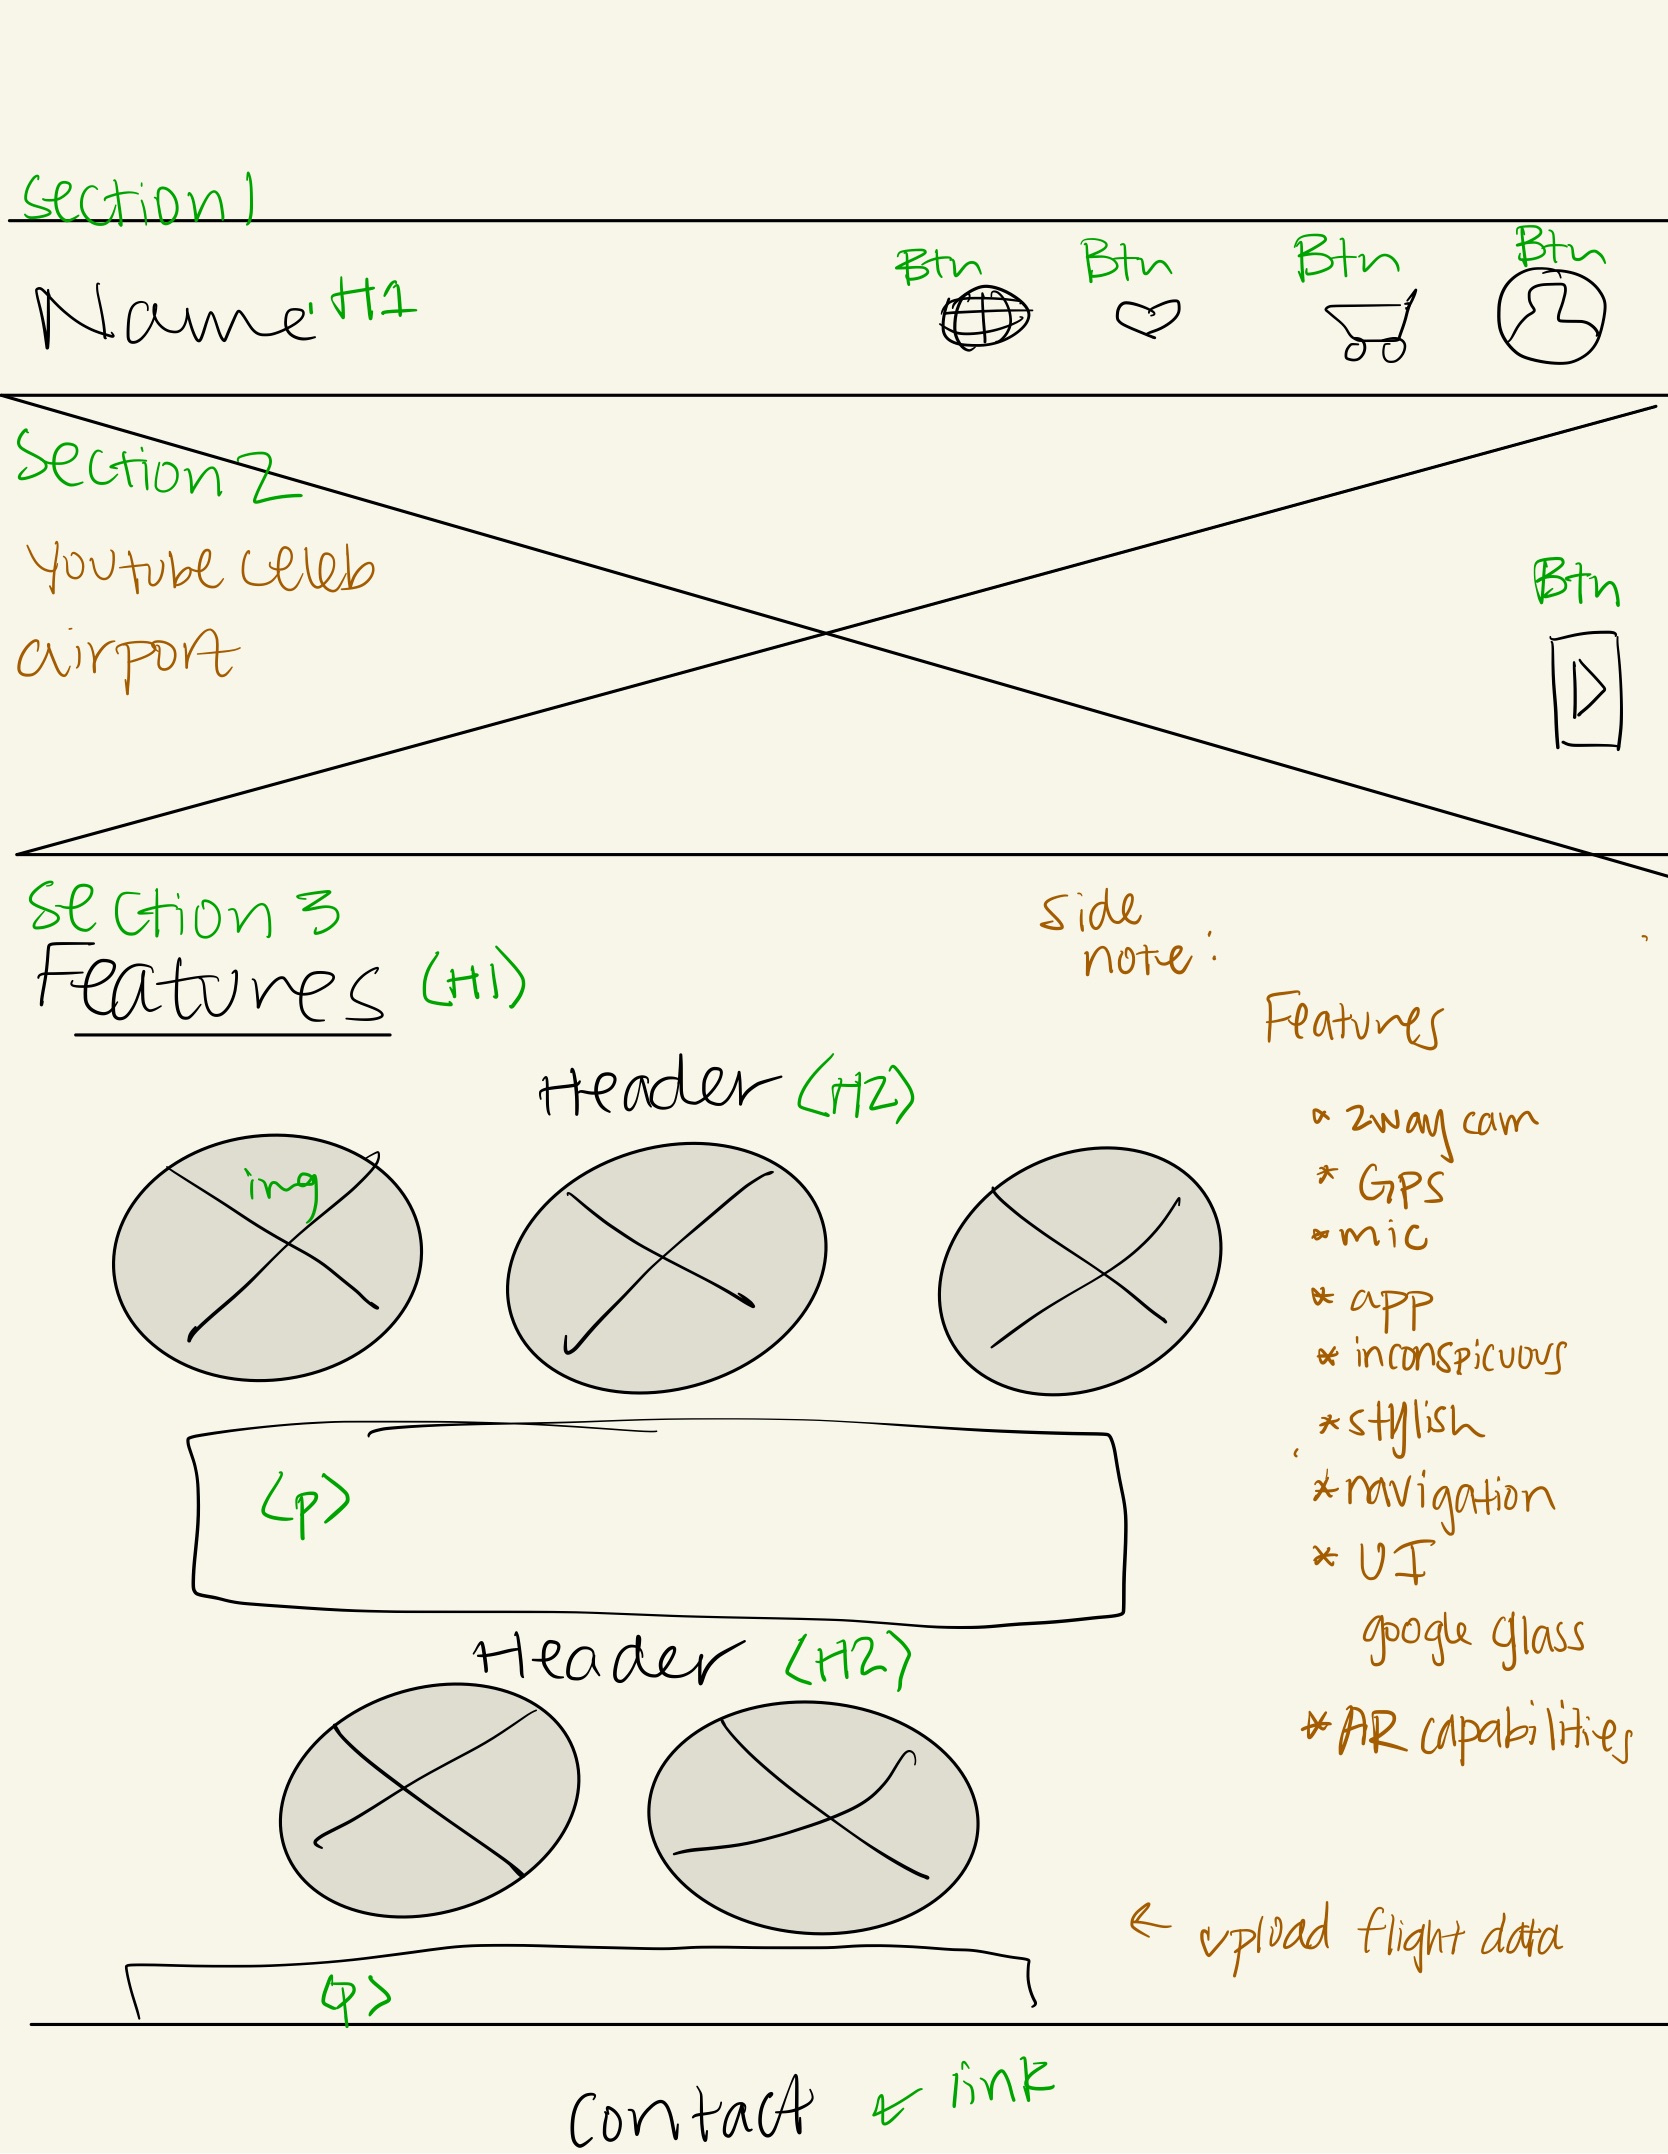 Section 1
Name H1
Btn Btn Btn Btn
Section 2
Youtube celeb
airport
Btn
Section 3
Features (H1)
Side
note:
Features
Header <H2>
* 2way cam
img
* GPS
* mic
* app
* inconspicuous
* stylish
<p>
* navigation
* UI
google glass
Header <H2>
* AR capabilities
← upload flight data
<p>
Contact ← link